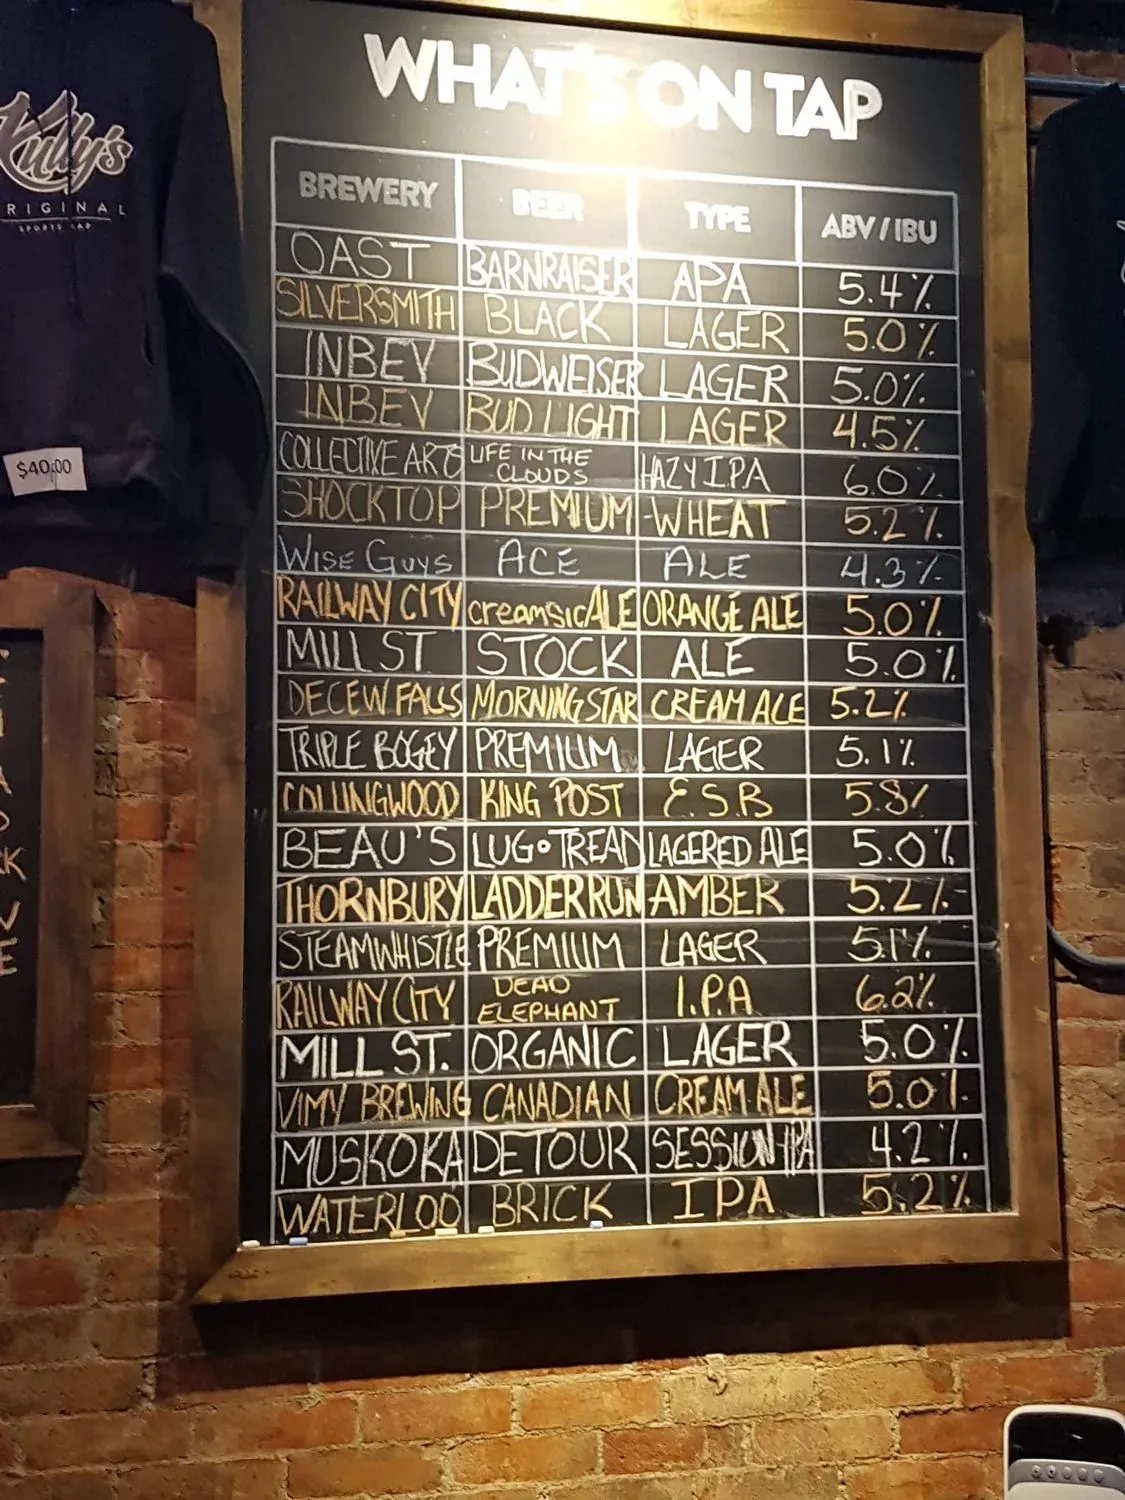 WHAT'S ON TAP
BREWERY BEER TYPE ABV / IBU
OAST BARNRAISER APA 5.4%
SILVERSMITH BLACK LAGER 5.0%
INBEV BUDWEISER LAGER 5.0%
INBEV BUD LIGHT LAGER 4.5%
COLLECTIVE ARTS LIFE IN THE CLOUDS HAZY I.P.A 6.0%
SHOCKTOP PREMIUM WHEAT 5.2%
WISE GUYS ACE ALE 4.3%
RAILWAY CITY creamsicALE ORANGE ALE 5.0%
MILL ST STOCK ALE 5.0%
DECEW FALLS MORNING STAR CREAM ALE 5.2%
TRIPLE BOGEY PREMIUM LAGER 5.1%
COLLINGWOOD KING POST E.S.B 5.8%
BEAU'S LUG•TREAD LAGERED ALE 5.0%
THORNBURY LADDER RUN AMBER 5.2%
STEAMWHISTLE PREMIUM LAGER 5.1%
RAILWAY CITY DEAD ELEPHANT I.P.A 6.2%
MILL ST. ORGANIC LAGER 5.0%
VIMY BREWING CANADIAN CREAM ALE 5.0%
MUSKOKA DETOUR SESSION IPA 4.2%
WATERLOO BRICK IPA 5.2%
Kully's
ORIGINAL
SPORTS BAR
$40.00